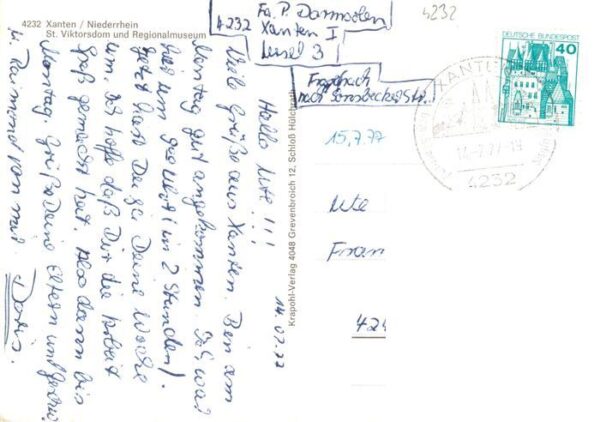 4232 Xanten / Niederrhein
St. Viktorsdom und Regionalmuseum
Fa. P.
4232 Xanten I
3
nach Sonsbecker Str.
4232
DEUTSCHE BUNDESPOST
40
XANTEN
14.-7.77-19
4232
15.7.77
Ute
Fran
424
14.07.77
Hallo Ute !!!
Viele Grüße aus Xanten. Bin am
Montag gut angekommen. Ich war
um 2 Stunden!
Jetzt hast Du ja Deine Woche
um. Ich hoffe daß Dir die Arbeit
Spaß gemacht hat. Also dann bis
Montag. Grüße Deine Eltern und
u. Raimond von mir. Doris.
Krapohl-Verlag 4048 Grevenbroich 12, Schloß Hülchrath